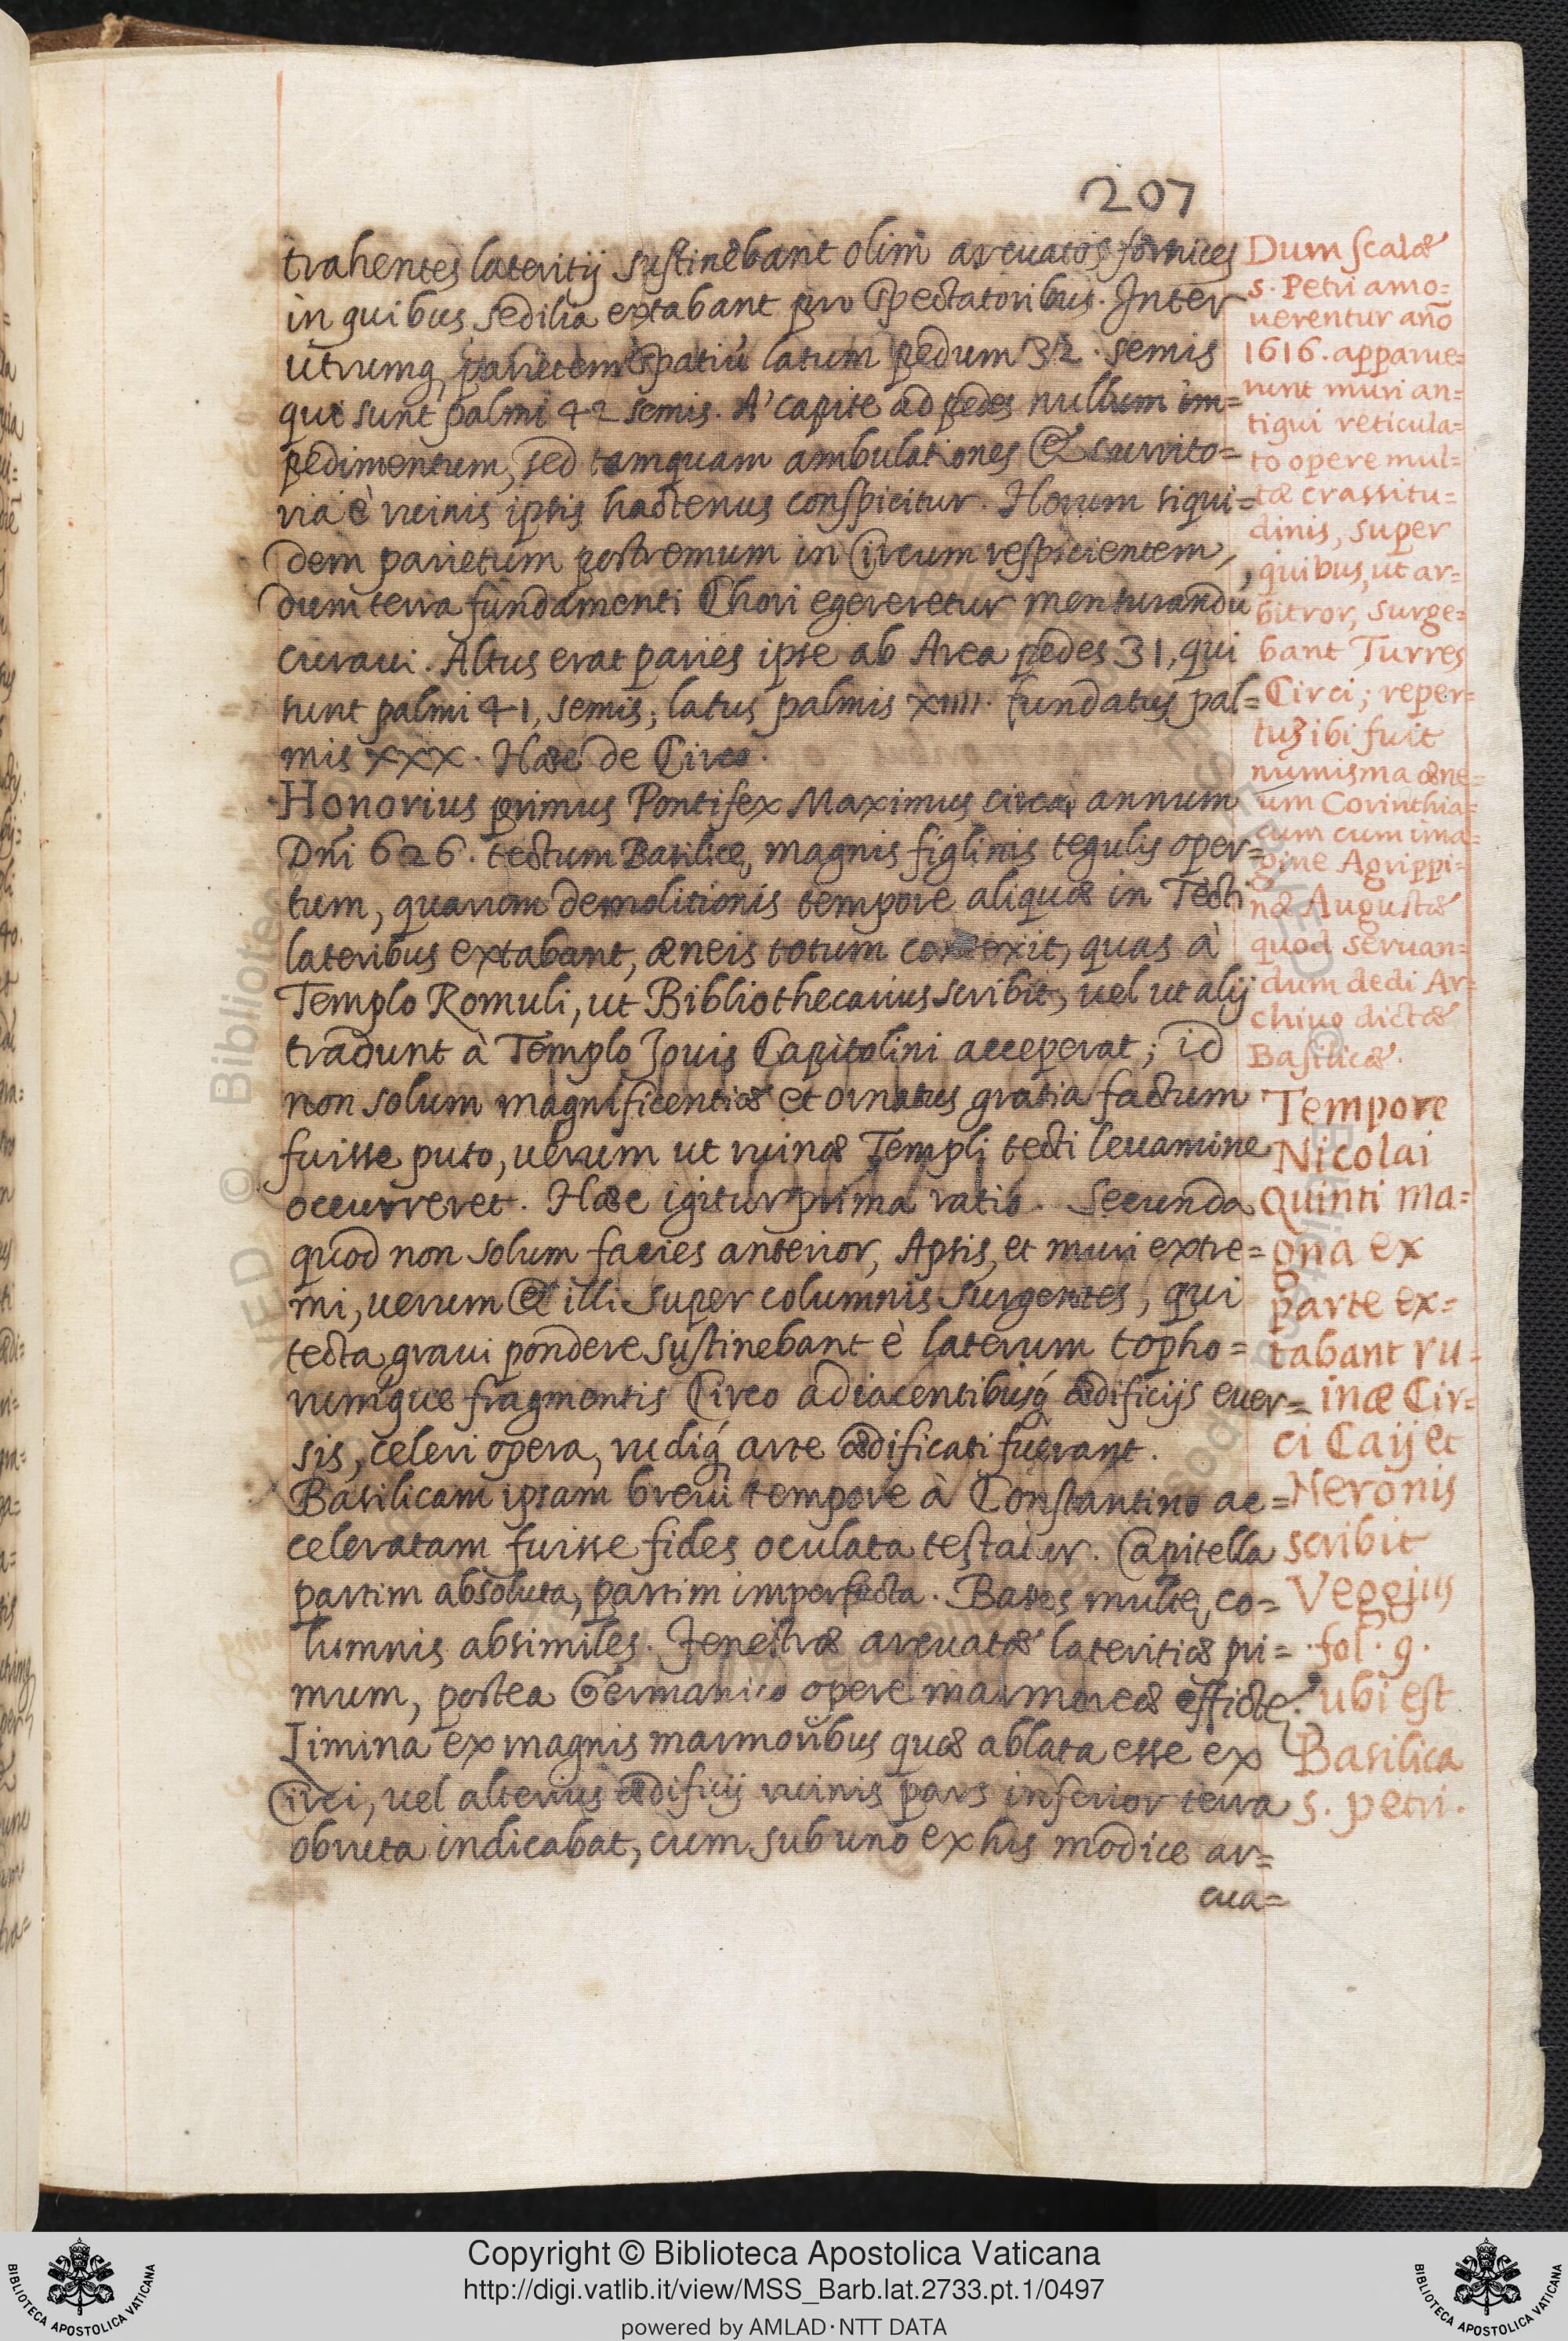 207
trahentes lateritij sustinebant olim arcuatos fornices
in quibus sedilia extabant pro Spectatoribus. Inter
utrumq. parietem spatiũ latum pedum 32. semis
qui sunt palmi 42 semis. A' capite ad pedes nullum im=
pedimentum, sed tamquam ambulationes & currito=
ria è ruinis ipsis hactenus conspicitur. Horum siqui=
dem parietum postremum in Circum respicientem,
dum terra fundamenti Chori egereretur mensurandũ
curaui. Altus erat paries ipse ab Area pedes 31, qui
sunt palmi 41, semis; latus palmis XIIII. fundatus pal=
mis XXX. Hæc de Circo.
Honorius primus Pontifex Maximus circa annum
Dñi 626. tectum Basilicæ, magnis figlinis tegulis oper=
tum, quarum demolitionis tempore aliquæ in Tecti
lateribus extabant, æneis totum contexit, quas à
Templo Romuli, ut Bibliothecarius scribit, uel ut alij
tradunt à Templo Jouis Capitolini acceperat; id
non solum magnificentiæ et ornatus gratia factum
fuisse puto, uerum ut ruinæ Templi tecti leuamine
occurreret. Hæc igitur prima ratio. Secunda
quod non solum facies anterior, Apsis, et muri extre=
mi, uerum et illi super columnis surgentes, qui
tecta graui pondere sustinebant è laterum topho=
rumque fragmentis Circo adiacentibusq́ ædificijs euer=
sis, celeri opera, rudiq́ arte ædificati fuerant.
Basilicam ipsam breui tempore à Constantino ac=
celeratam fuisse fides oculata testatur. Capitella
partim absoluta, partim imperfecta. Bases multę co=
lumnis absimiles. Fenestræ arcuatæ lateritiæ pri=
mum, postea Germanico opere marmoreæ effictę.
Limina ex magnis marmoribus quæ ablata esse ex
Circi, uel alterius ædificij ruinis pars inferior terra
obruta indicabat, cum sub uno ex his modice ar=
cua=
Dum scalæ
S. Petri amo=
uerentur año
1616. apparue=
runt muri an=
tiqui reticula=
to opere mul=
tæ crassitu=
dinis, super
quibus, ut ar=
bitror, surge=
bant Turres
Circi; reper=
tuʒ ibi fuit
numisma æne=
um Corinthia=
cum cum ima=
gine Agrippi=
næ Augustæ
quod seruan=
dum dedi Ar=
chiuo dictæ
Basilicæ.
Tempore
Nicolai
Quinti ma=
gna ex
parte ex=
tabant ru=
inæ Cir=
ci Caij et
Neronis
scribit
Veggius
fol. 9.
ubi est
Basilica
S. Petri.
Copyright © Biblioteca Apostolica Vaticana
http://digi.vatlib.it/view/MSS_Barb.lat.2733.pt.1/0497
powered by AMLAD·NTT DATA
BIBLIOTECA APOSTOLICA VATICANA
BIBLIOTECA APOSTOLICA VATICANA